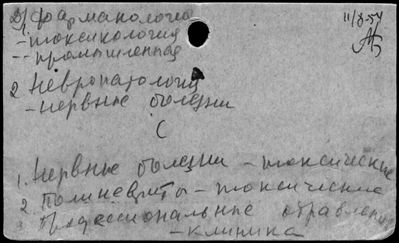 2) фармакология 11/8-57
- токсикология
- промышленная
2 Невропатология
- нервные болезни
(
1. Нервные болезни - токсические
2. Полиневриты - токсические
3 Профессиональные отравления
- клиника